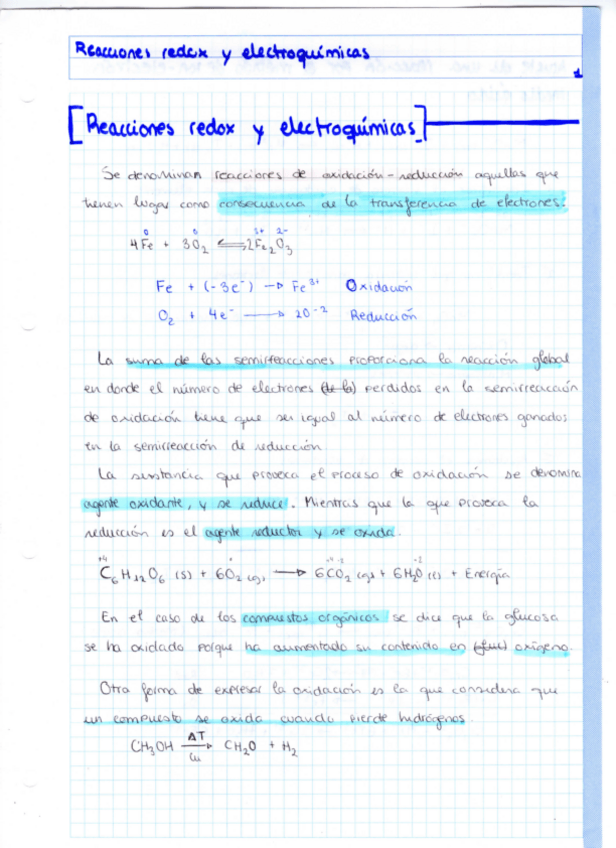 Reacciones redox y electroquímicas
1
[Reacciones redox y electroquímicas]
Se denominan reacciones de oxidación-reducción aquellas que
tienen lugar como consecuencia de la transferencia de electrones.
0 0 3+ 2-
4Fe + 3O₂ ⇌ 2Fe₂O₃
Fe + (-3e⁻) → Fe³⁺ Oxidación
O₂ + 4e⁻ → 2O⁻² Reducción
La suma de las semirreacciones proporciona la reacción global
en donde el número de electrones (de la) perdidos en la semirreacción
de oxidación tiene que ser igual al número de electrones ganados
en la semirreacción de reducción.
La sustancia que provoca el proceso de oxidación se denomina
agente oxidante, y se reduce. Mientras que la que provoca la
reducción es el agente reductor y se oxida.
C₆H₁₂O₆ (s) + 6O₂ (g) → 6CO₂ (g) + 6H₂O (l) + Energía
En el caso de los compuestos orgánicos se dice que la glucosa
se ha oxidado porque ha aumentado su contenido en oxígeno.
Otra forma de expresar la oxidación es la que considera que
un compuesto se oxida cuando pierde hidrógenos.
ΔT
CH₃OH → CH₂O + H₂
Cu